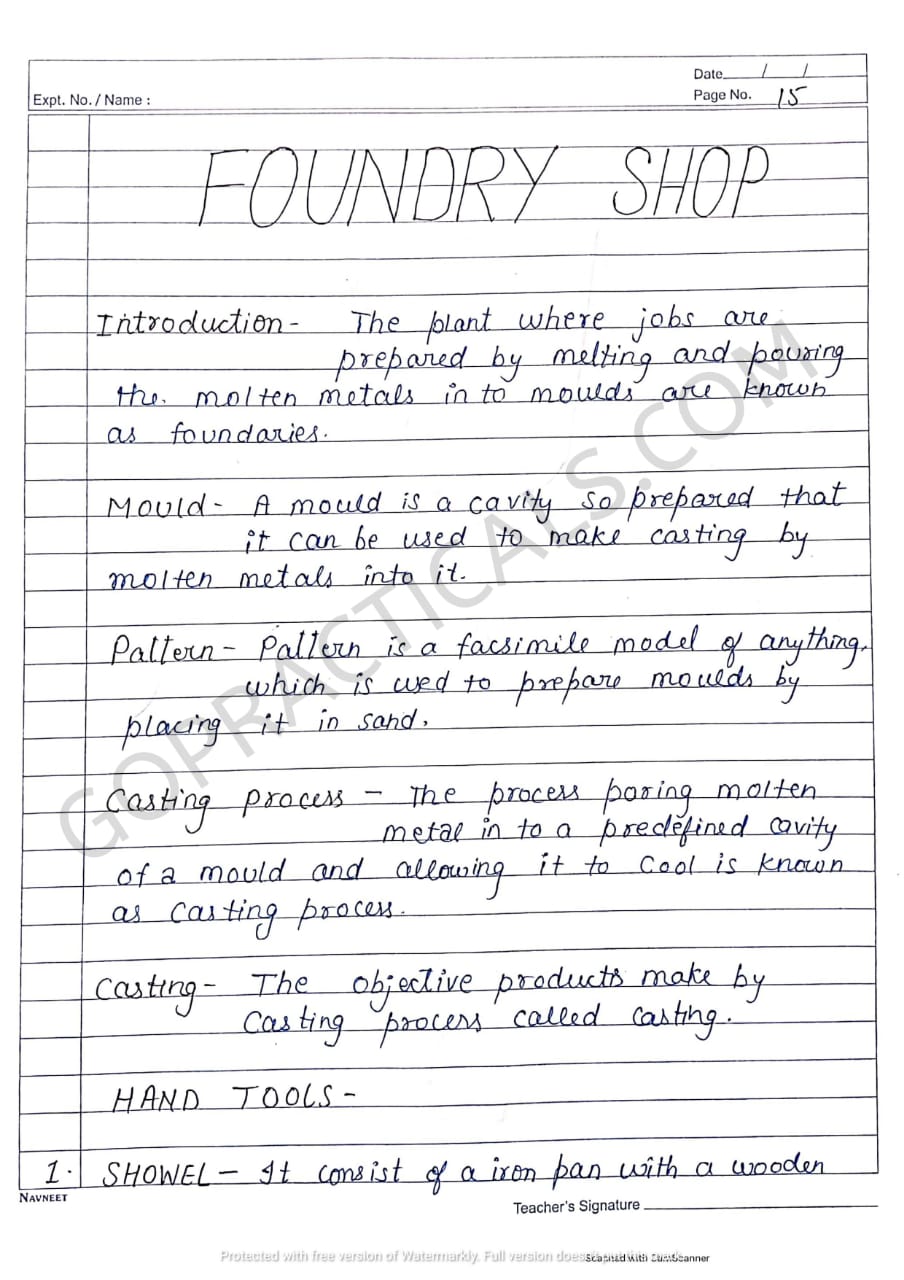 Date / /
Expt. No. / Name :
Page No. 15
FOUNDRY SHOP
Introduction - The plant where jobs are
prepared by melting and pouring
the. molten metals in to moulds are known
as foundaries.
Mould - A mould is a cavity so prepared that
it can be used to make casting by
molten metals into it.
Pattern - Pattern is a facsimile model of anything,
which is used to prepare moulds by
placing it in sand.
Casting process - The process poring molten
metal in to a predefined cavity
of a mould and allowing it to cool is known
as casting process.
Casting - The objective products make by
Casting process called casting.
HAND TOOLS -
1. SHOWEL - It consist of a iron pan with a wooden
NAVNEET
Teacher's Signature
GOPRACTICALS.COM
Protected with free version of Watermarkly. Full version does
Scanned with CamScanner